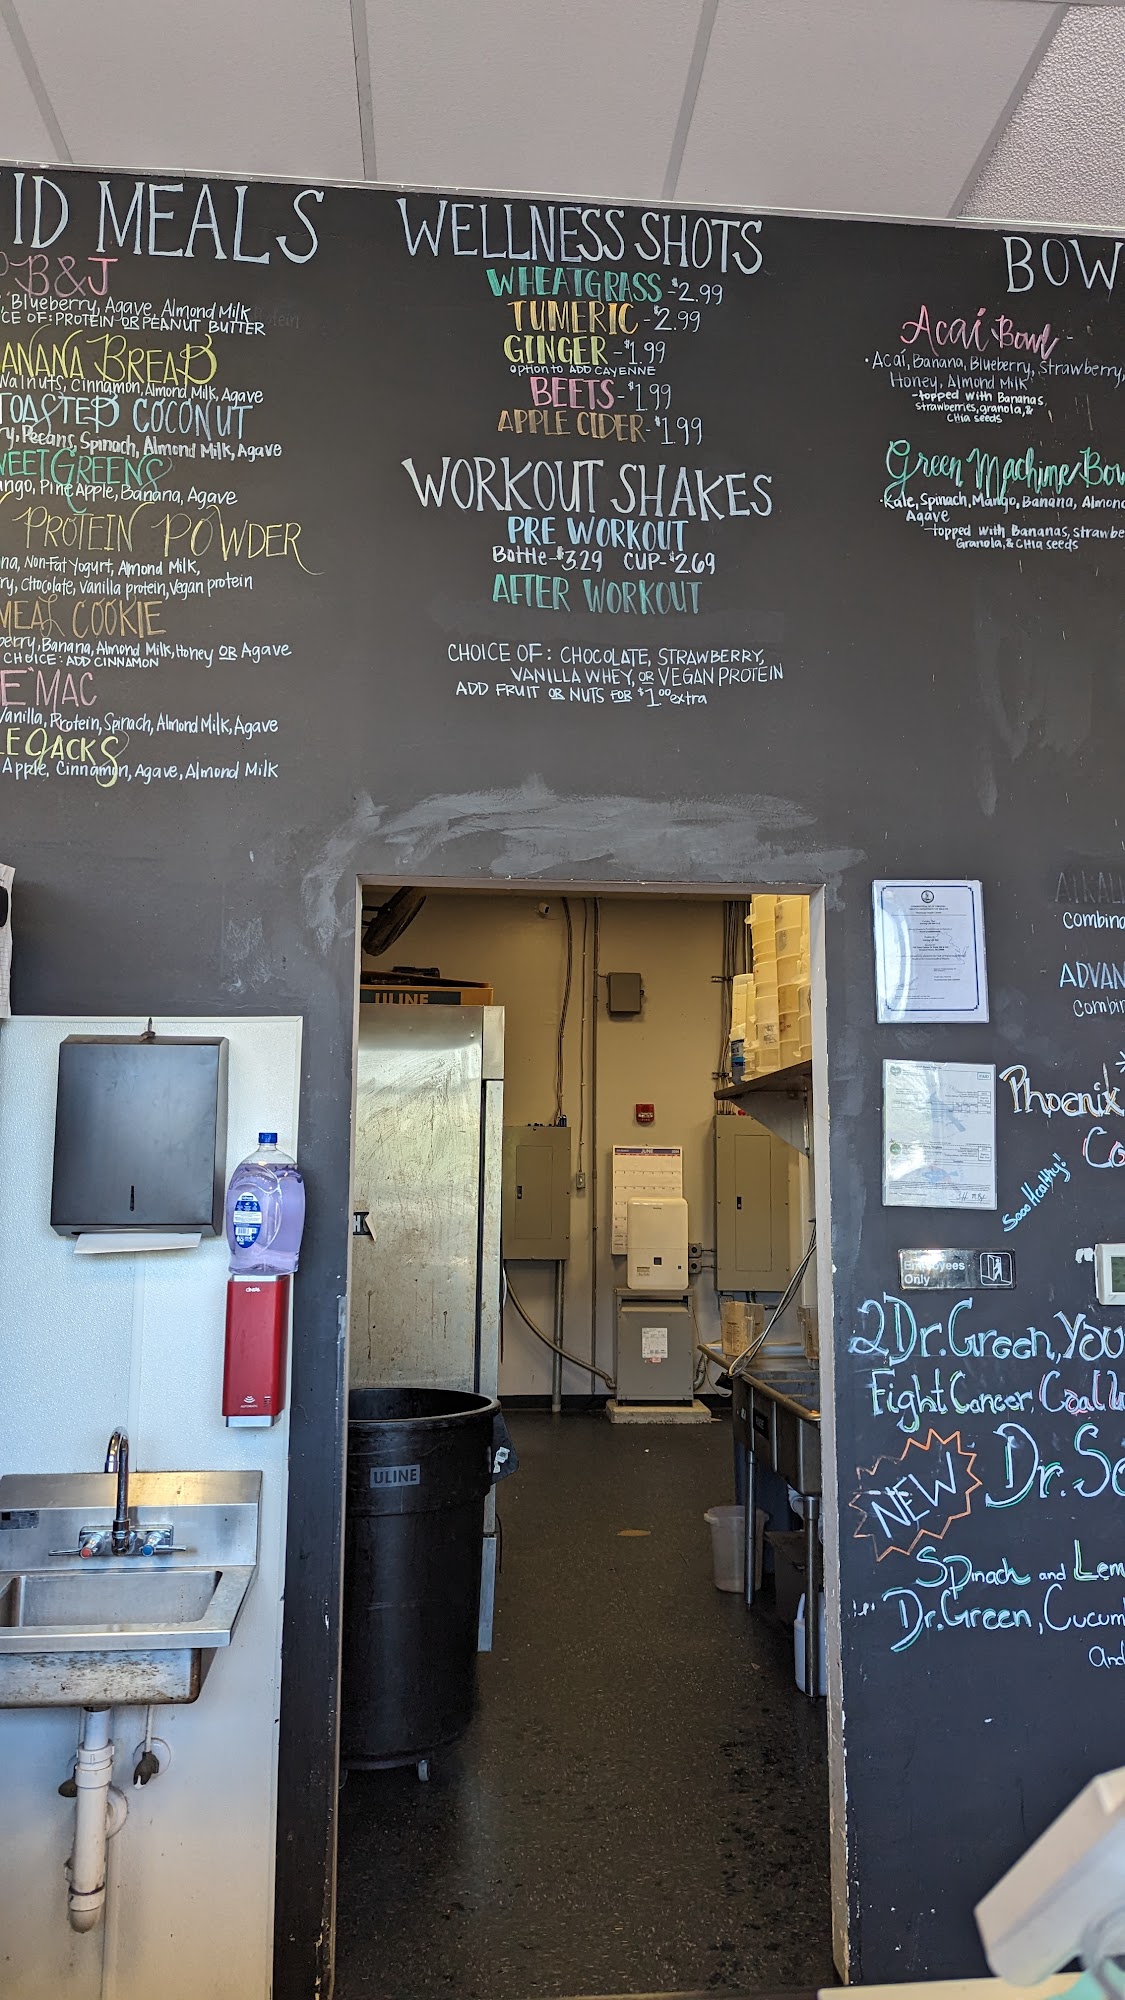 ID MEALS
B&J
Blueberry, Agave, Almond Milk
CE OF: PROTEIN OR PEANUT BUTTER
ANANA BREAD
Walnuts, Cinnamon, Almond Milk, Agave
TOASTED COCONUT
ry, Pecans, Spinach, Almond Milk, Agave
WEET GREENS
ango, Pineapple, Banana, Agave
PROTEIN POWDER
na, Non-Fat Yogurt, Almond Milk,
ry, Chocolate, Vanilla protein, Vegan protein
MEAL COOKIE
berry, Banana, Almond Milk, Honey OR Agave
CHOICE: ADD CINNAMON
E MAC
Vanilla, Protein, Spinach, Almond Milk, Agave
LE JACKS
Apple, Cinnamon, Agave, Almond Milk
WELLNESS SHOTS
WHEATGRASS -$2.99
TUMERIC -$2.99
GINGER -$1.99
option to ADD CAYENNE
BEETS -$1.99
APPLE CIDER -$1.99
WORKOUT SHAKES
PRE WORKOUT
Bottle-$3.29 CUP-$2.69
AFTER WORKOUT
CHOICE OF: CHOCOLATE, STRAWBERRY,
VANILLA WHEY, OR VEGAN PROTEIN
ADD FRUIT OR NUTS FOR $1.00 extra
BOW
Acaí Bowl
·Acaí, Banana, Blueberry, Strawberry,
Honey, Almond Milk
-topped with Bananas,
strawberries, granola, &
CHia seeds
Green Machine Bow
·Kale, Spinach, Mango, Banana, Almond
Agave
-topped with Bananas, strawbe
Granola, & CHia seeds
ALKALI
Combina
ADVAN
Combin
Phoenix
Co
Sooo Healthy!
Employees
Only
2 Dr. Green, You
Fight Cancer, Coal
NEW
Dr. S
Spinach and Lem
Dr. Green, Cucum
and
ULINE
JUNE
ULINE